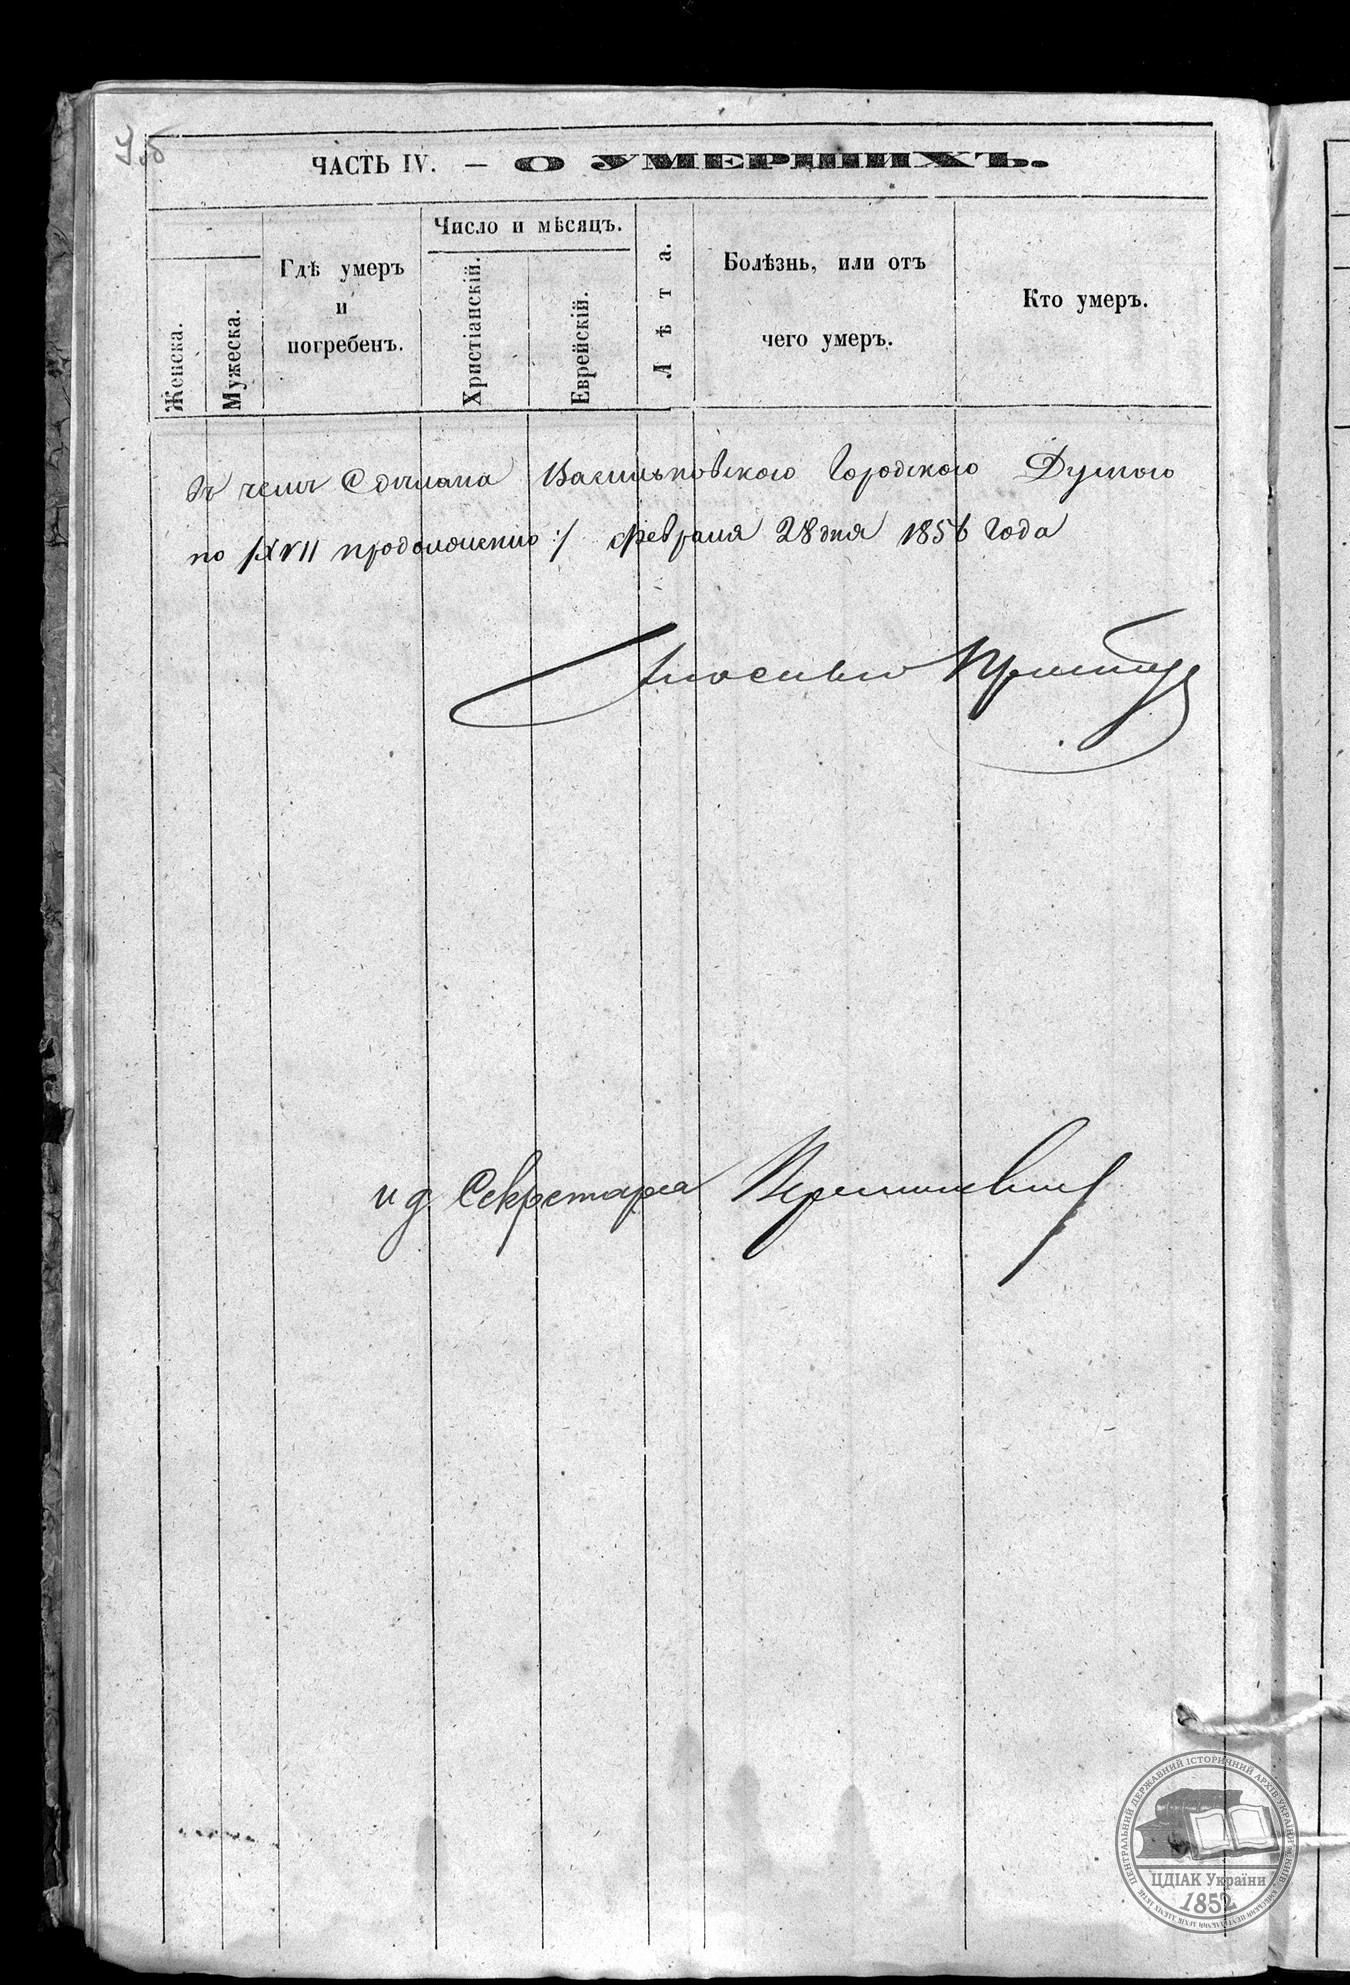 ЧАСТЬ IV. — О УМЕРШИХЪ.
Женска.
Мужеска.
Гдѣ умеръ
и
погребенъ.
Число и мѣсяцъ.
Христіанскій.
Еврейскій.
Лѣта.
Болѣзнь, или отъ
чего умеръ.
Кто умеръ.
Васильковского Городского Думого
по продолженію :/ февраля 28 дня 1856 года
и д Секретаря
ЦЕНТРАЛЬНИЙ ДЕРЖАВНИЙ ІСТОРИЧНИЙ АРХІВ УКРАЇНИ
ЦДІАК України
1852